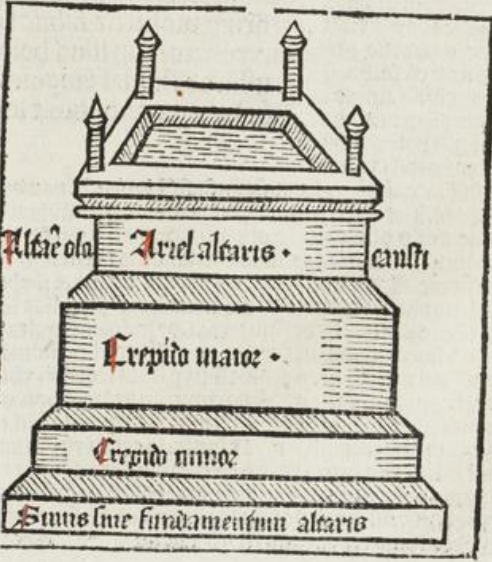 Altar̄e olo Ariel altaris · causti
Crepido maior ·
Crepido minor
Sinus siue fundamentum altaris